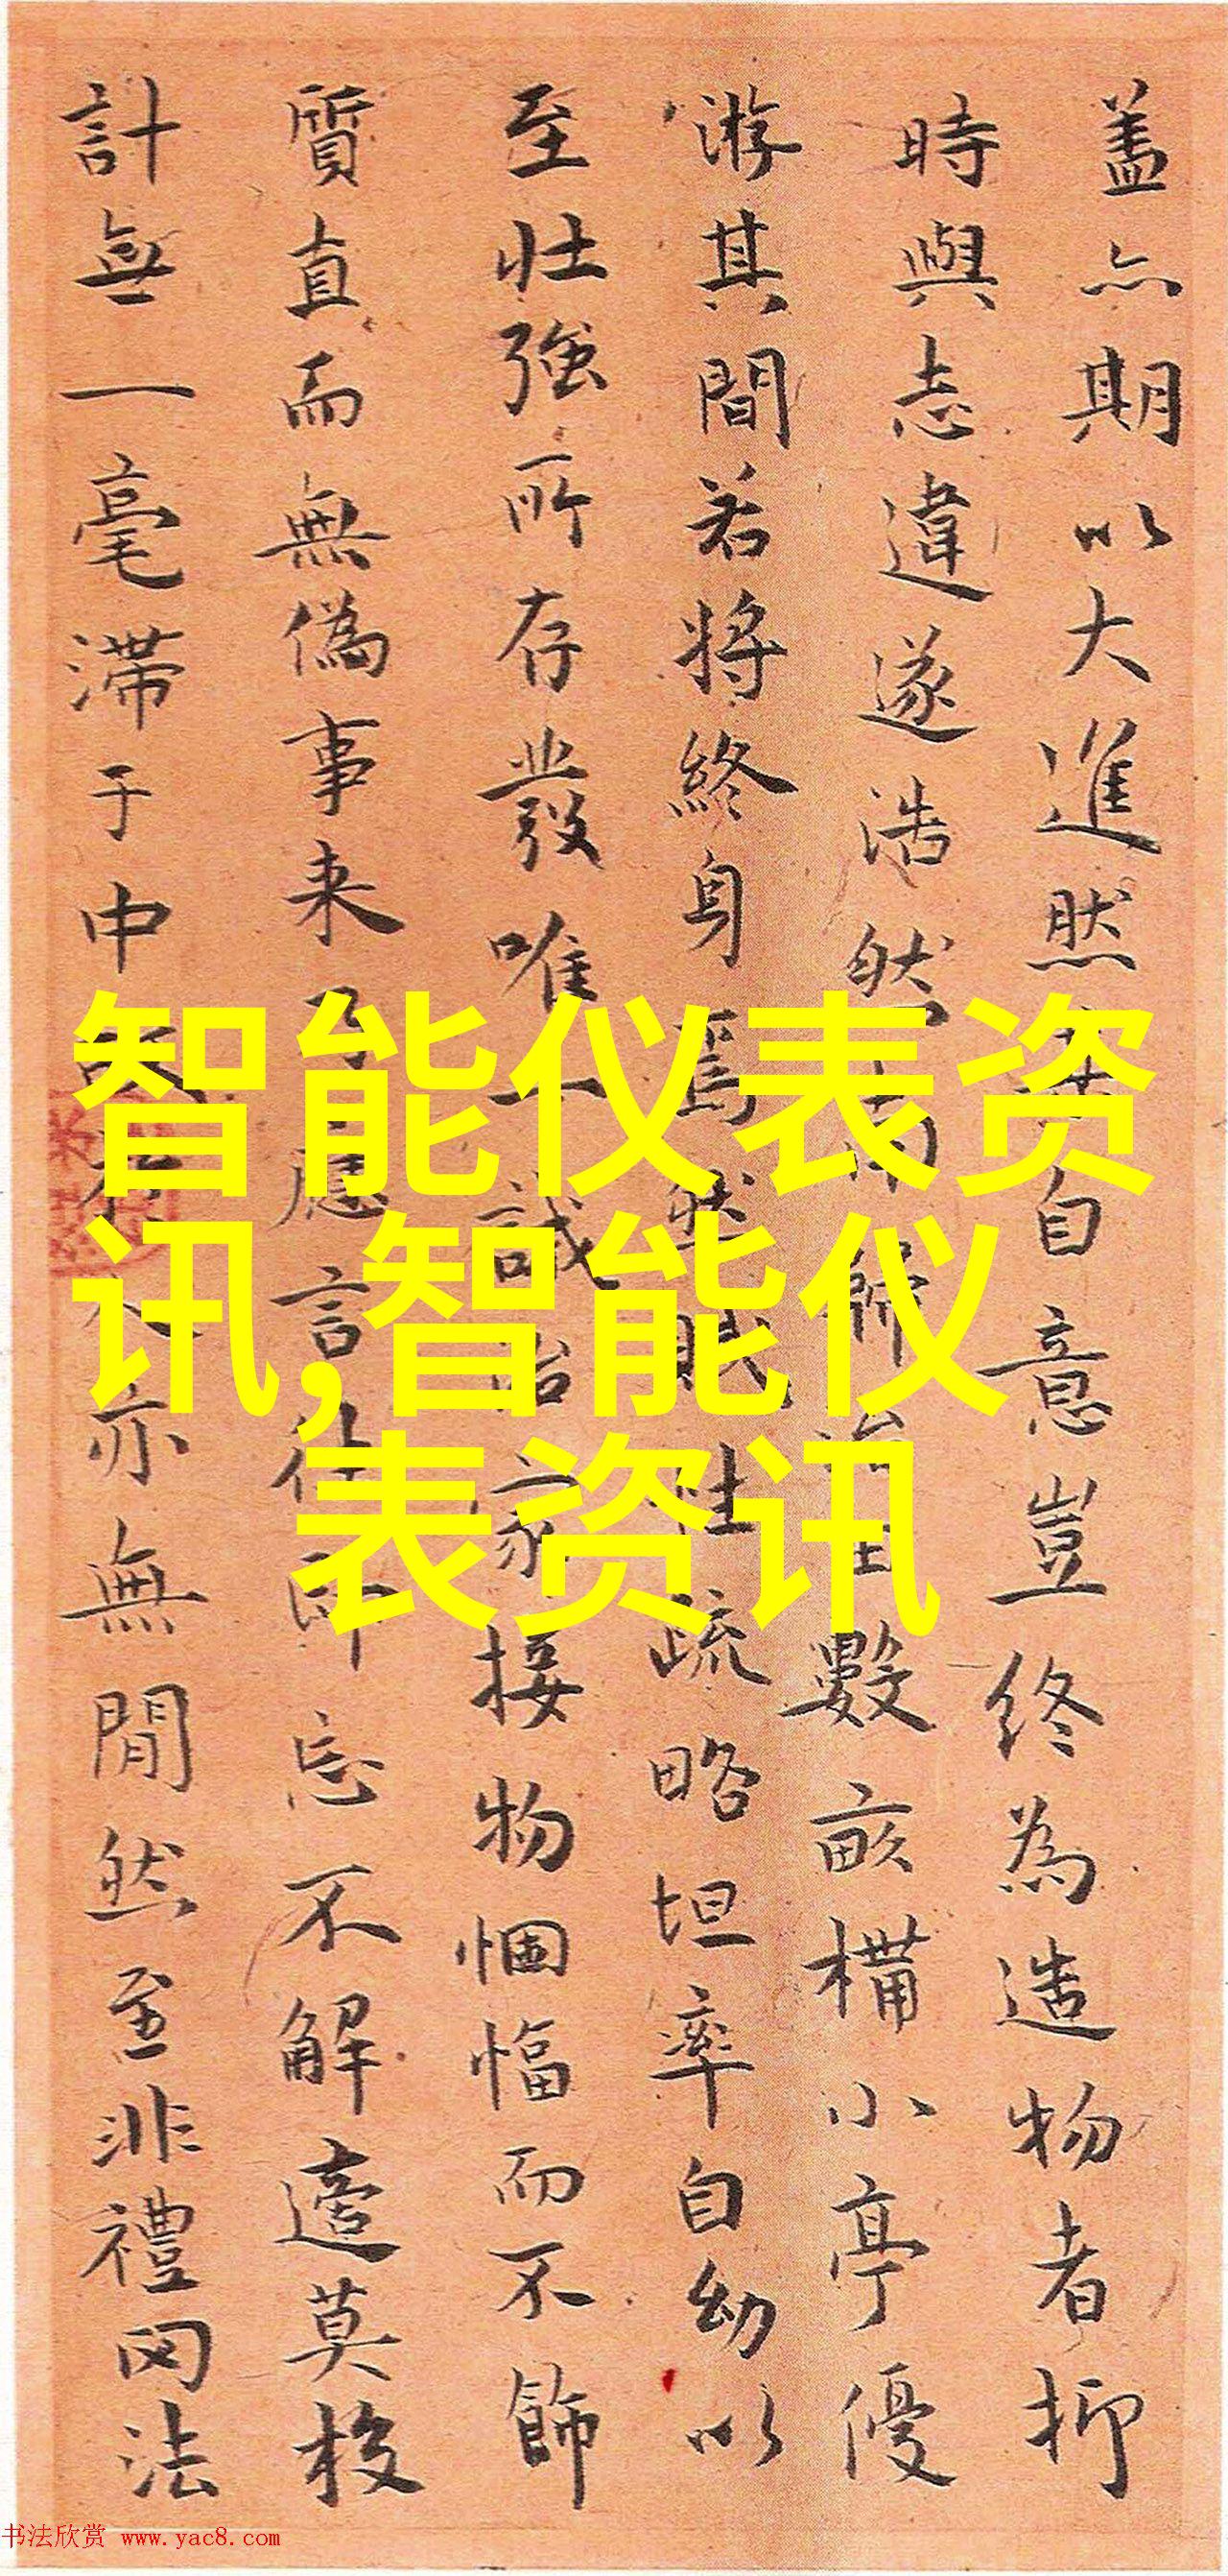 盖亦期以大進然自意豈終為造物者抑
時與志違遂浩然而歸治田數畝構小亭優
游其間若將終身焉然賦性疏略坦率自幼以
至壯強所存發唯一誠治家接物悃愊而不飾
質直而無偽事来乃應言往即忘不解適莫校
計無一毫滯于中亦無閒然至非禮罔法
智能仪表资
讯,智能仪
表资讯
书法欣赏 www.yac8.com